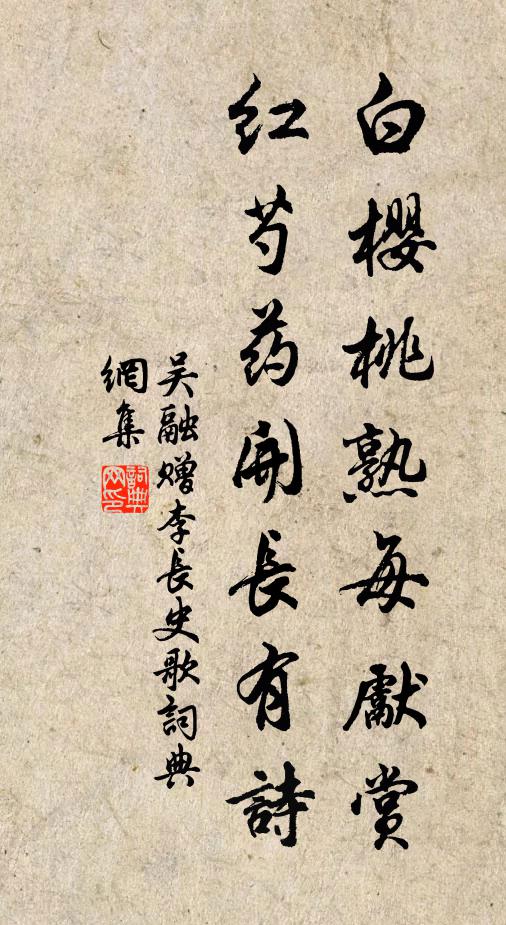 白櫻桃熟每獻賞
红芍药開長有詩
吴融赠李長史歌詞典
網集
詞典
网印